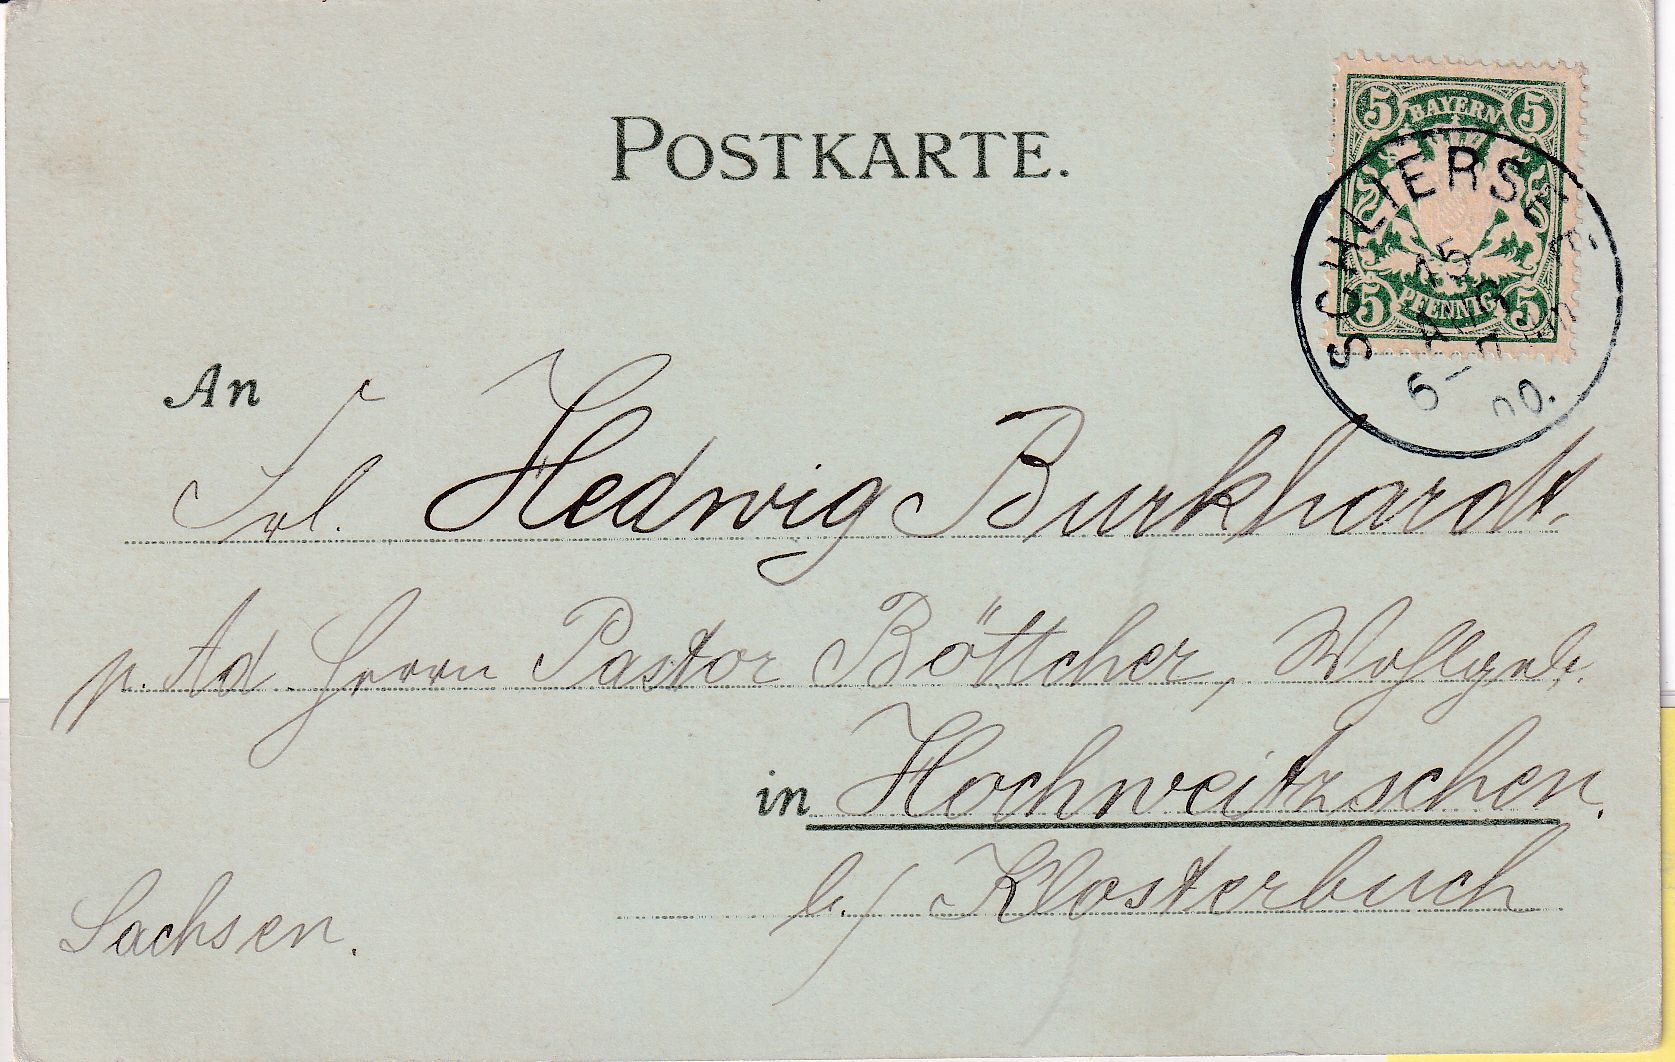 POSTKARTE.
5 BAYERN 5
5 PFENNIG 5
SCHLIERSEE
15
AUG
6-7
00.
An
Frl. Hedwig Burkhardt,
p. Ad. Herrn Pastor Böttcher, Wohlgeb.
in Hochweitzschen.
b./ Klosterbuch
Sachsen.